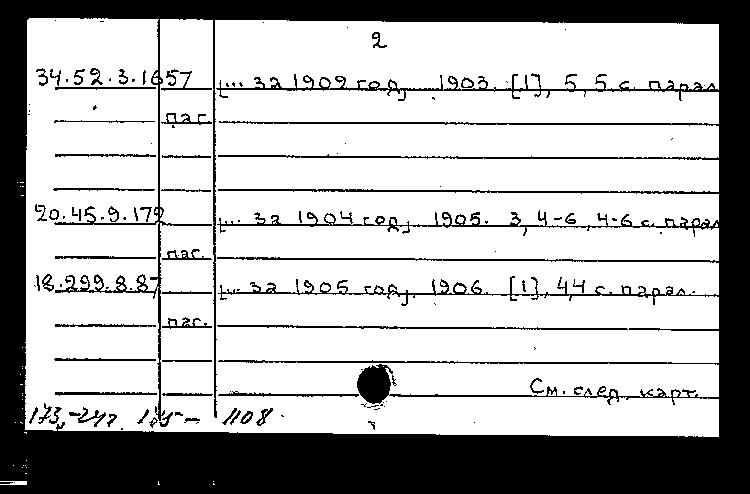 2
34.52.3.1657 [... за 1902 год]. 1903. [1], 5, 5 с. парал
паг.
20.45.9.172 [... за 1904 год]. 1905. 3, 4-6, 4-6 с. парал
паг.
18.299.8.87 [... за 1905 год]. 1906. [1], 4,4 с. парал.
паг.
См. след. карт.
1108